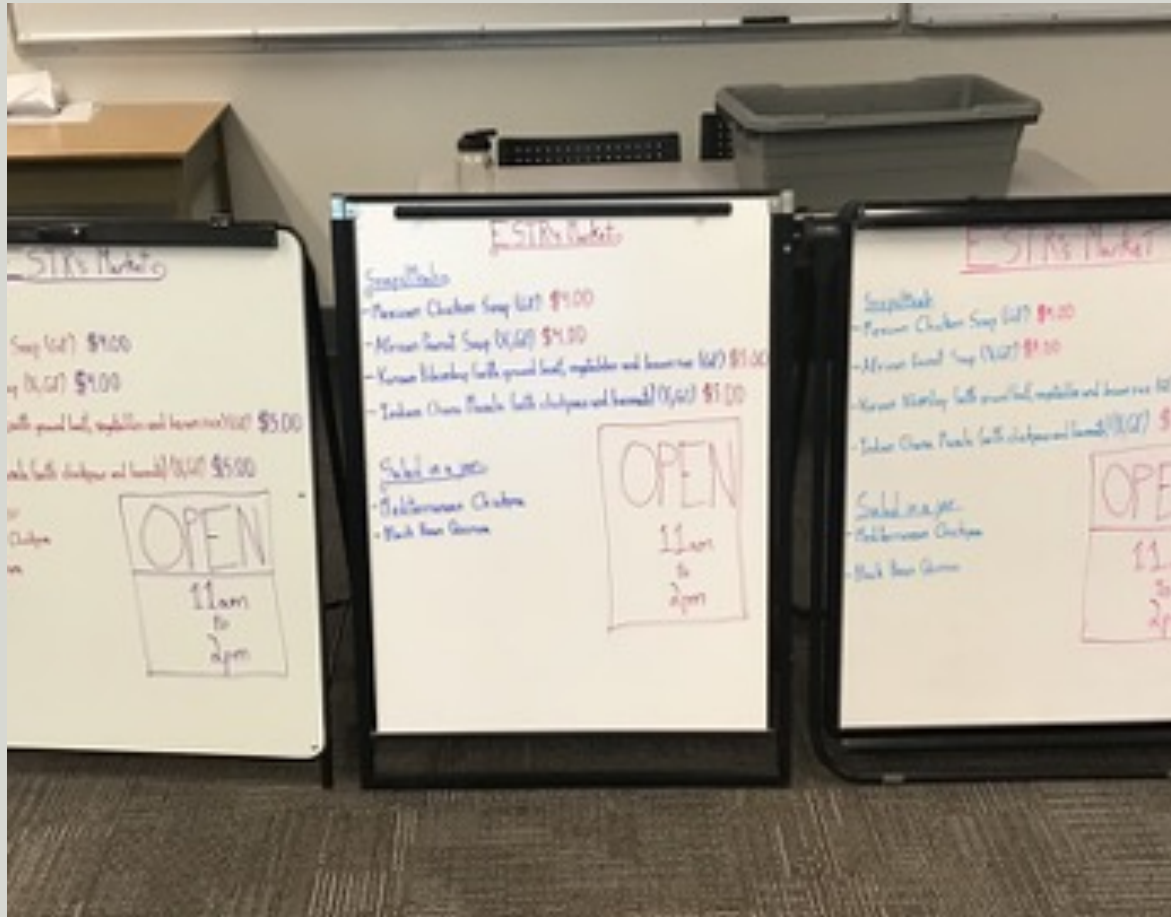 ESTR's Market
Soup (GF) $4.00
(V,GF) $4.00
(with ground beef, vegetables and brown rice) (GF) $5.00
(with chickpeas and basmati) (V,GF) $5.00
Chickpea
OPEN
11am
to
2pm
ESTR's Market
Soups/Meals
- Mexican Chicken Soup (GF) $4.00
- African Peanut Soup (V,GF) $4.00
- Korean Bibimbap (with ground beef, vegetables and brown rice) (GF) $5.00
- Indian Chana Masala (with chickpeas and basmati) (V,GF) $5.00
Salad in a jar
- Mediterranean Chickpea
- Black Bean Quinoa
OPEN
11am
to
2pm
ESTR's Market
Soups/Meals
- Mexican Chicken Soup (GF) $4.00
- African Peanut Soup (V,GF) $4.00
- Korean Bibimbap (with ground beef, vegetables and brown rice)
- Indian Chana Masala (with chickpeas and basmati) (V,GF)
Salad in a jar
- Mediterranean Chickpea
- Black Bean Quinoa